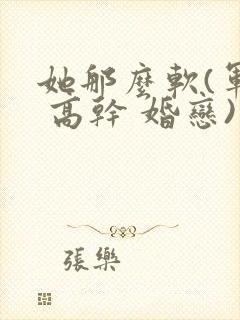 她那麼軟(軍
高幹 婚戀)
張樂